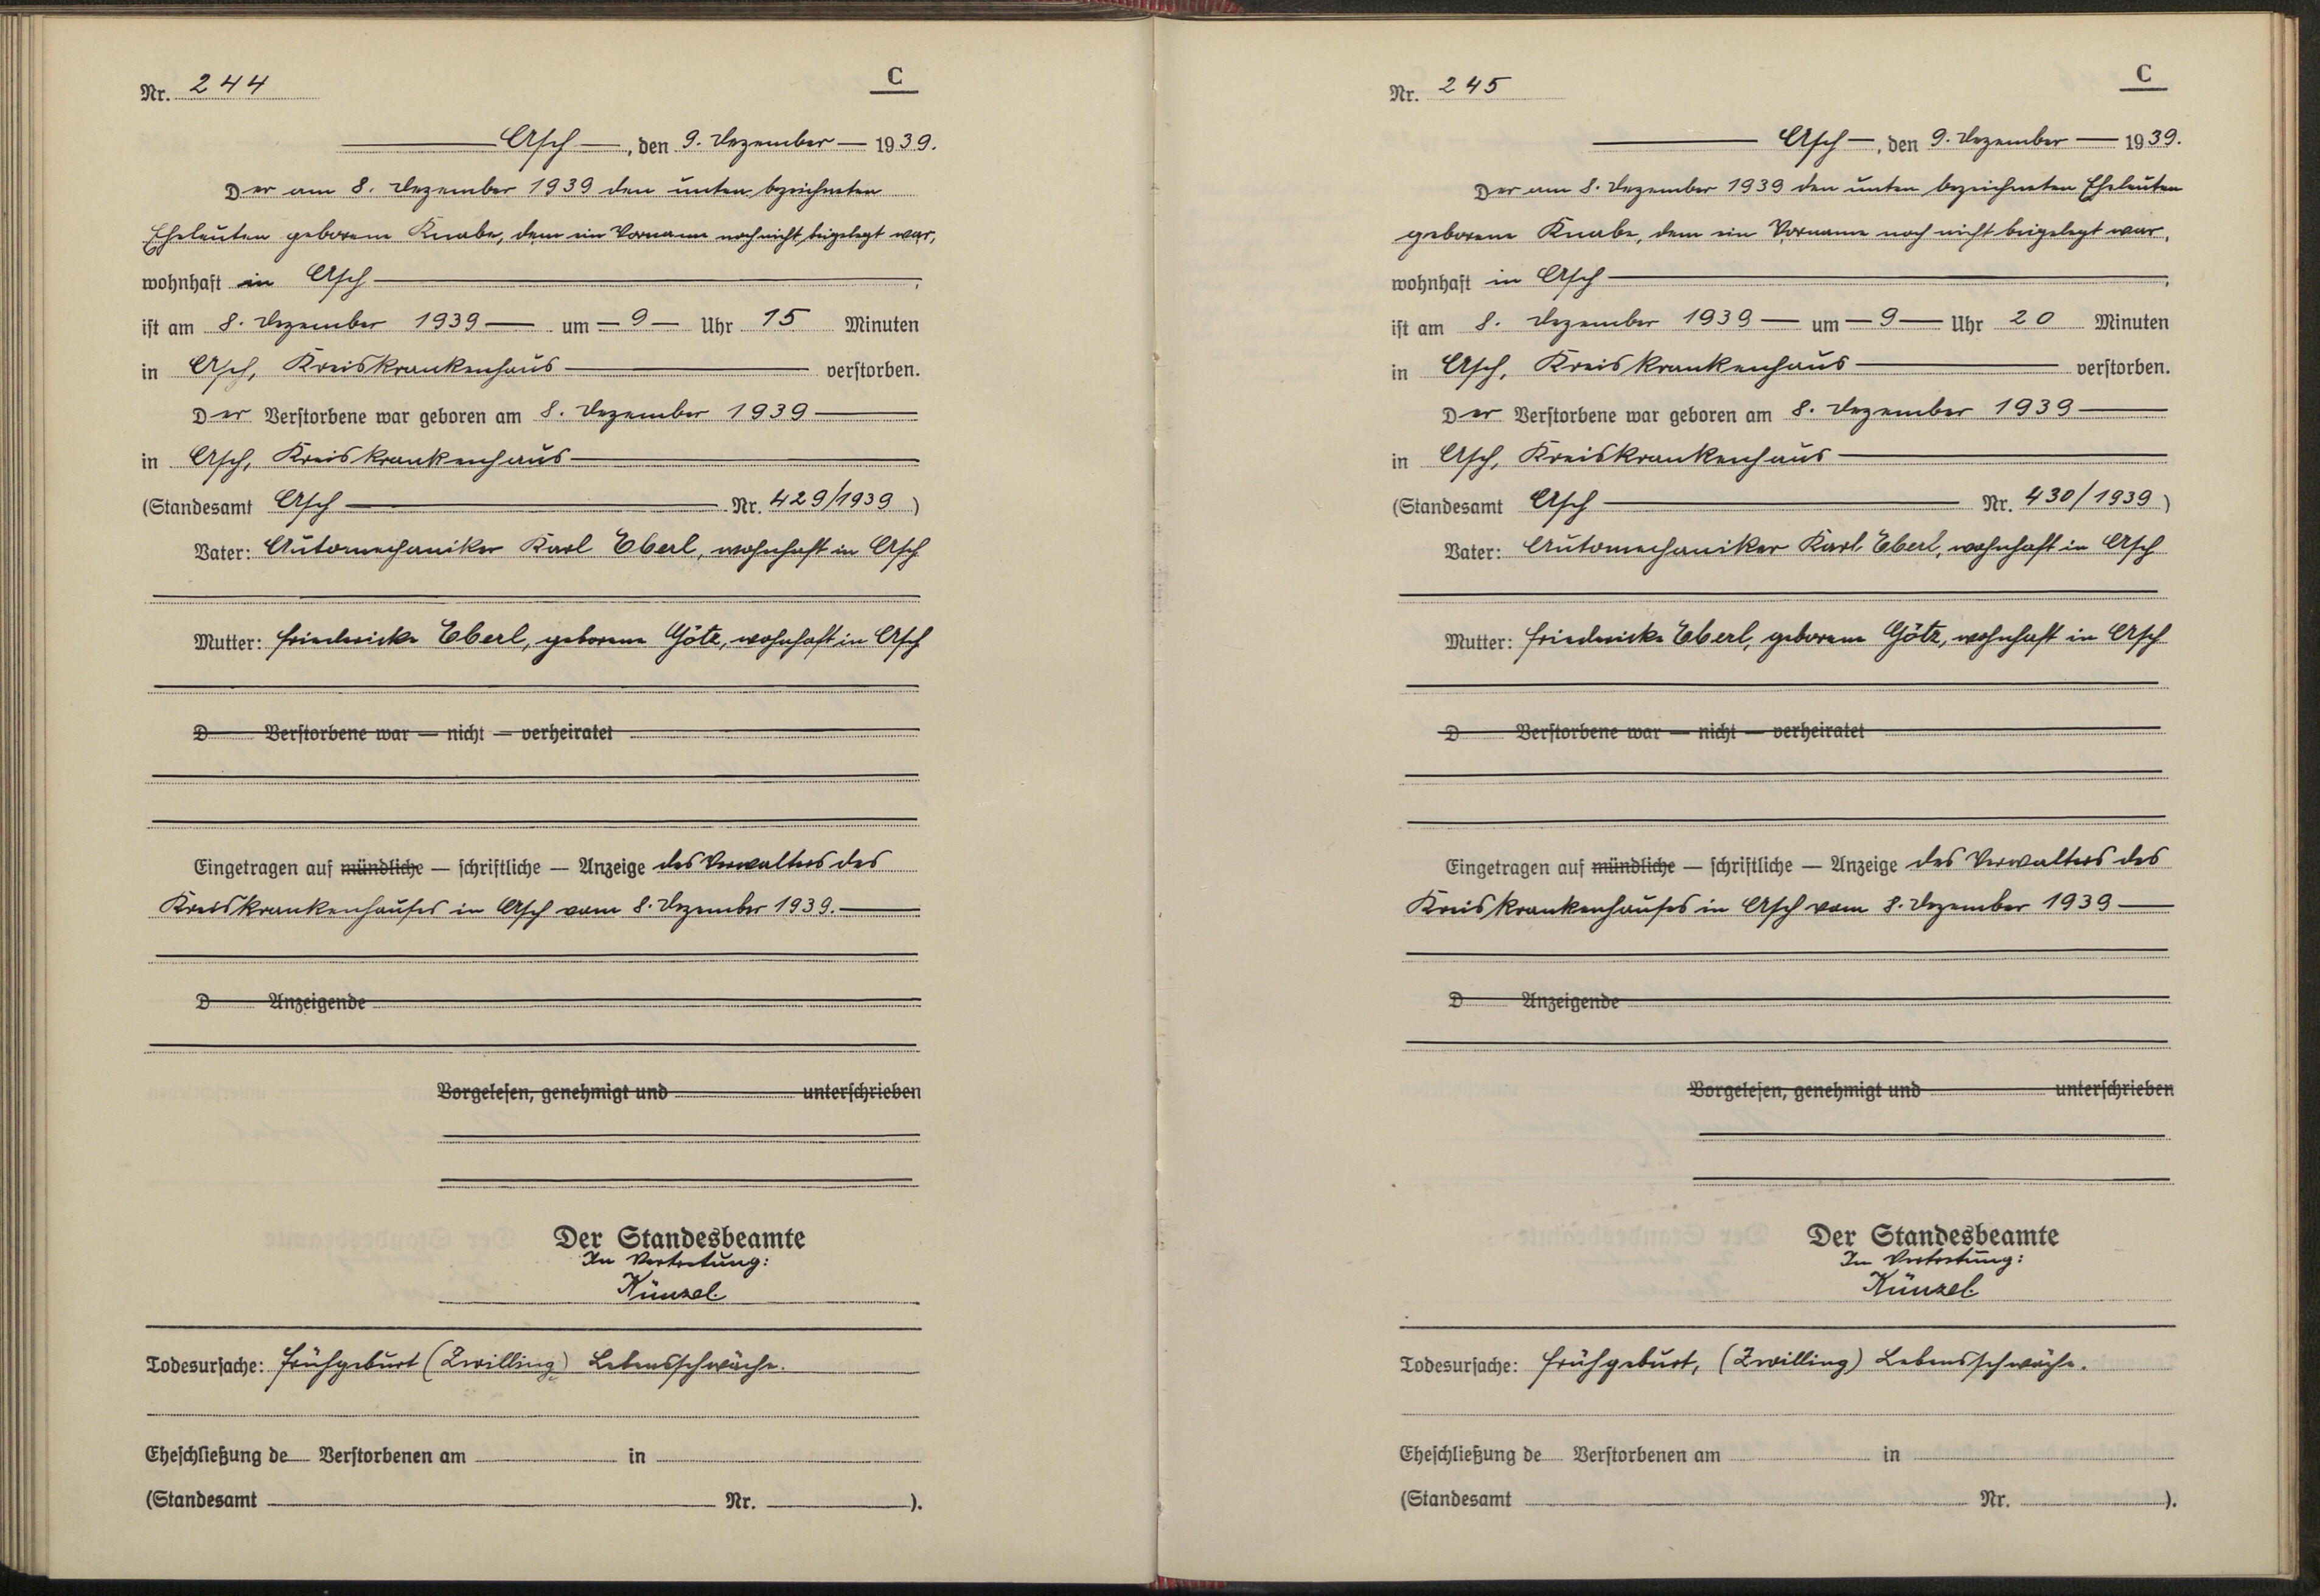 Nr. 244
C
Asch, den 9. Dezember 1939.
Der am 8. Dezember 1939 den unten bezeichneten
Eheleuten geborene Knabe, dem ein Vorname noch nicht beigelegt war,
wohnhaft in Asch ,
ist am 8. Dezember 1939 um 9 Uhr 15 Minuten
in Asch, Kreiskrankenhaus verstorben.
Der Verstorbene war geboren am 8. Dezember 1939
in Asch, Kreiskrankenhaus
(Standesamt Asch Nr. 429/1939)
Vater: Automechaniker Karl Eberl, wohnhaft in Asch
Mutter: Friedericke Eberl, geborene Götz, wohnhaft in Asch
D Verstorbene war — nicht — verheiratet
Eingetragen auf mündliche — schriftliche — Anzeige des Verwalters des
Kreiskrankenhauses in Asch vom 8. Dezember 1939.
D Anzeigende
Vorgelesen, genehmigt und unterschrieben
Der Standesbeamte
In Vertretung:
Künzel.
Todesursache: Frühgeburt (Zwilling) Lebensschwäche.
Eheschließung de Verstorbenen am in
(Standesamt Nr. ).
Nr. 245
C
Asch, den 9. Dezember 1939.
Der am 8. Dezember 1939 den unten bezeichneten Eheleuten
geborene Knabe, dem ein Vorname noch nicht beigelegt war,
wohnhaft in Asch ,
ist am 8. Dezember 1939 um 9 Uhr 20 Minuten
in Asch, Kreiskrankenhaus verstorben.
Der Verstorbene war geboren am 8. Dezember 1939
in Asch, Kreiskrankenhaus
(Standesamt Asch Nr. 430/1939)
Vater: Automechaniker Karl Eberl, wohnhaft in Asch
Mutter: Friedericke Eberl, geborene Götz, wohnhaft in Asch
D Verstorbene war — nicht — verheiratet
Eingetragen auf mündliche — schriftliche — Anzeige des Verwalters des
Kreiskrankenhauses in Asch vom 8. Dezember 1939
D Anzeigende
Vorgelesen, genehmigt und unterschrieben
Der Standesbeamte
In Vertretung:
Künzel.
Todesursache: Frühgeburt, (Zwilling) Lebensschwäche.
Eheschließung de Verstorbenen am in
(Standesamt Nr. ).